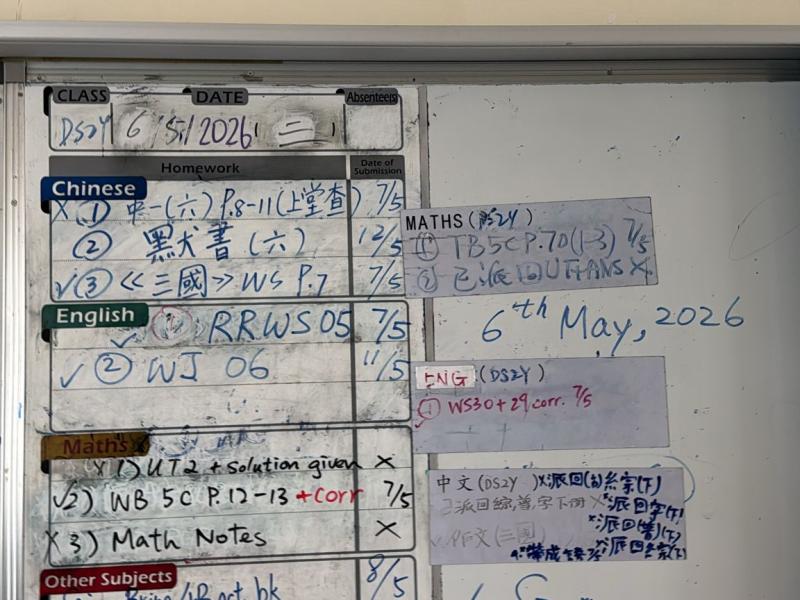 CLASS DATE Absentee(s)
DS2Y 6/5/2026 (二)
Homework Date of Submission
Chinese
X ① 中一(六) P.8-11(上堂查) 7/5
② 黑犬書(六) 12/5
✓③ 《三國》WS P.7 7/5
English
✓ ① RRWS05 7/5
✓ ② WJ 06 11/5
Maths
X 1) UT2 + solution given X
✓2) WB 5C P.12-13 +corr 7/5
X 3) Math Notes X
Other Subjects
8/5
MATHS (DS2Y)
① TB5C P.70(1-3) 7/5
② 已派回UT1 ANS X
6th May, 2026
ENG (DS2Y)
✓ ① WS30+29 corr. 7/5
中文(DS2Y) X派回
已派回綜,普,字下冊 X
X派回字(下)
作文(三國
X派回(普)(下)